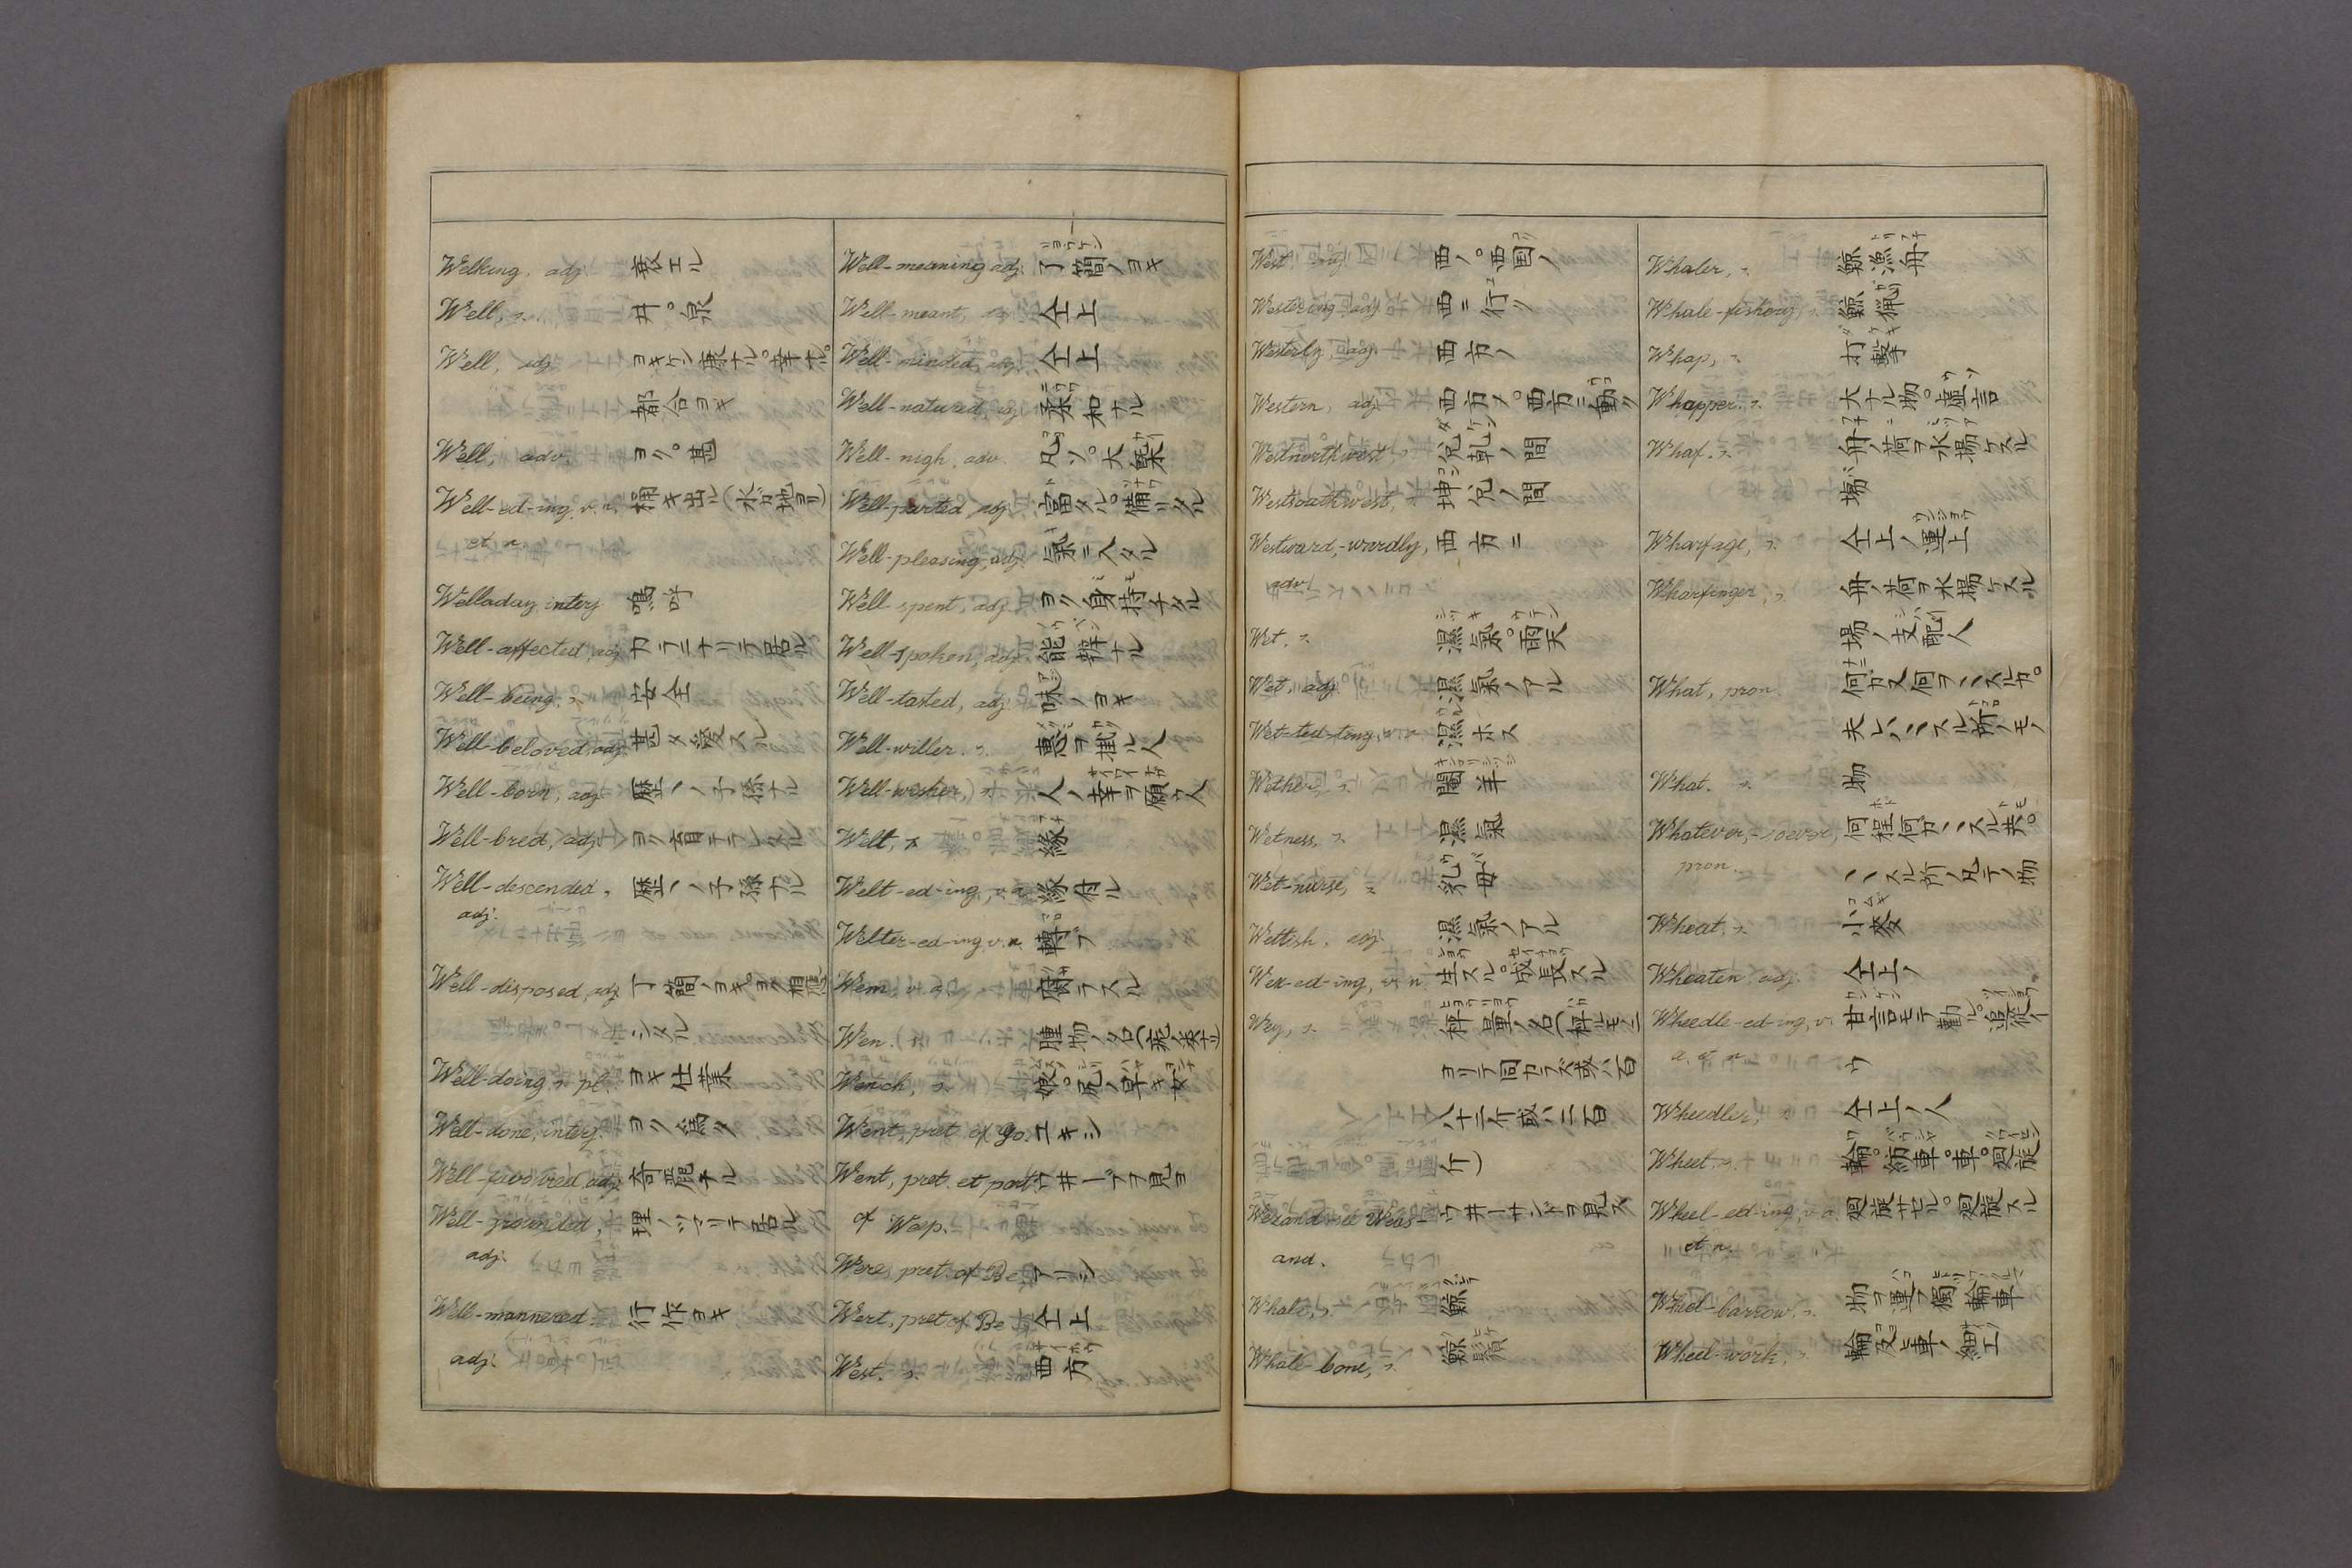 Welking, adj. 衰エル
Well, s. 井。泉
Well, adj. ヨキ。健康ナル。幸ナル。
都合ヨキ
Well, adv. ヨク。甚
Well-ed-ing, v. a. 涌キ出ル(水ガ地ヨリ)
et n.
Welladay, interj. 嗚呼
Well-affected, adj.
Well-being, s. 安全
Well-beloved, adj. 甚タ愛スル
Well-born, adj. 歴々ノ子孫ナル
Well-bred, adj. ヨク育テラレタル
Well-descended, 歴々ノ子孫ナル
adj.
Well-disposed, adj. 了簡ノヨキ。ヨク相應
シタル
Well-doing, s. pl. ヨキ仕業
Well-done, interj. ヨク為タ
Well-favoured, adj. 奇麗ナル
Well-grounded, 理ノツマリテ居ル
adj.
Well-mannered 行作ヨキ
adj.
Well-meaning, adj. 了簡ノヨキ
Well-meant, 仝上
Well-minded, adj. 仝上
Well-natured, adj. 柔和ナル
Well-nigh, adv. 凡ソ。大概
Well-parted, adj. 富タル。備リタル
Well-pleasing, adj. 氣ニ入タル
Well-spent, adj. ヨク身持チタル
Well-spoken, adj. 能辨ナル
Well-tasted, adj. 味ノヨキ
Well-willer, s. 恵ヲ掛ル人
Well-wisher, s. 人ノ幸ヲ願ウ人
Welt, s. 縁
Welt-ed-ing, v. a. 縁付ル
Welter-ed-ing, v. n. 轉ブ
Wem, v. a. 腐ラスル
Wen, s. 腫物ノ名
Wench, s.
Went, pret. of go. ユキシ
Went, pret. et part. ウ井ープヲ見ヨ
of Weep.
Were, pret. of Be アリシ
Wert, pret. of Be 仝上
West, s. 西方
West, adj. 西ノ。西国ノ
Westering, adj. 西ニ行ク
Westerly, adj. 西方ノ
Western, adj. 西方ノ。西方ニ動ク
Westnorthwest, s. 兌乾ノ間
Westsouthwest, s. 坤兌ノ間
Westward,-wardly, 西方ニ
adv.
Wet, s. 濕氣。雨天
Wet, adj. 濕氣ノアル
Wet-ted-ting, v. a. 濕ホス
Wether, s. 閹羊
Wetness, s. 濕氣
Wet-nurse, s. 乳母
Wettish, adj. 濕氣ノアル
Wex-ed-ing, v. n. 生スル。成長スル
Wey, s. 秤量ノ名(秤ル モニ
ヨリテ同カラズ或ハ百
八十二斤或ハ二百
斤)
Wezand see Weas- ウ井ーサンドヲ見ヨ
and.
Whale, s. 鯨
Whale-bone, s. 鯨鬚
Whaler, s. 鯨漁舟
Whale-fishery, s. 鯨猟
Whap, s. 打撃
Whapper, s. 大ナル物。虚言
Wharf, s. 舟ノ荷ヲ水揚ケスル
場
Wharfage, s. 仝上ノ運上
Wharfinger, s. 舟ノ荷ヲ水揚ケスル
場ノ支配人
What, pron. 何カ又何ヲ〻スルカ。
夫レハ〻スル所ノモノ
What, s. 物
Whatever,-soever, 何程何カ〻スル共。
pron. 〻スル所ノ凡テノ物
Wheat, s. 小麥
Wheaten, adj. 仝上ノ
Wheedle-ed-ing, v. 甘言モテ勸ル。追従イ
a. et n. ウ
Wheedler, s. 仝上ノ人
Wheel, s. 輪。紡車。車。廻旋
Wheel-ed-ing, v. a. 廻旋サセル。廻旋スル
et n.
Wheel-barrow, s. 物ヲ運ブ獨輪車
Wheel-work, s. 輪及ヒ車ノ細工